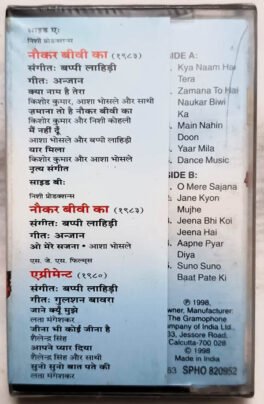 साइड ए:
निशी प्रोडक्शन्स
नौकर बीवी का (१९८३)
संगीत: बप्पी लाहिड़ी
गीत: अन्जान
क्या नाम है तेरा
किशोर कुमार, आशा भोसले और साथी
ज़माना तो है नौकर बीवी का
किशोर कुमार और निशी कोहली
मैं नहीं दूँ
आशा भोसले और बप्पी लाहिड़ी
यार मिला
किशोर कुमार और आशा भोसले
नृत्य संगीत
साइड बी:
निशी प्रोडक्शन्स
नौकर बीवी का (१९८३)
संगीत: बप्पी लाहिड़ी
गीत: अन्जान
ओ मेरे सजना • आशा भोसले
एस. जे. एस. फिल्म्स
एग्रीमेंट (१९८०)
संगीत: बप्पी लाहिड़ी
गीत: गुलशन बावरा
जाने क्यूँ मुझे
लता मंगेशकर
जीना भी कोई जीना है
शैलेन्द्र सिंह
आपने प्यार दिया
शैलेन्द्र सिंह और साथी
सुनो सुनो बात पते की
लता मंगेशकर
SIDE A:
Kya Naam Hai
Tera
Zamana To Hai
Naukar Biwi
Ka
Main Nahin
Doon
Yaar Mila
Dance Music
SIDE B:
O Mere Sajana
Jane Kyon
Mujhe
Jeena Bhi Koi
Jeena Hai
Aapne Pyar
Diya
Suno Suno
Baat Pate Ki
℗ 1998,
wner, Manufacturer:
The Gramophone
ompany of India Ltd.
3, Jessore Road,
Calcutta-700 028
© 1998
Made in India
63 SPHO 820952